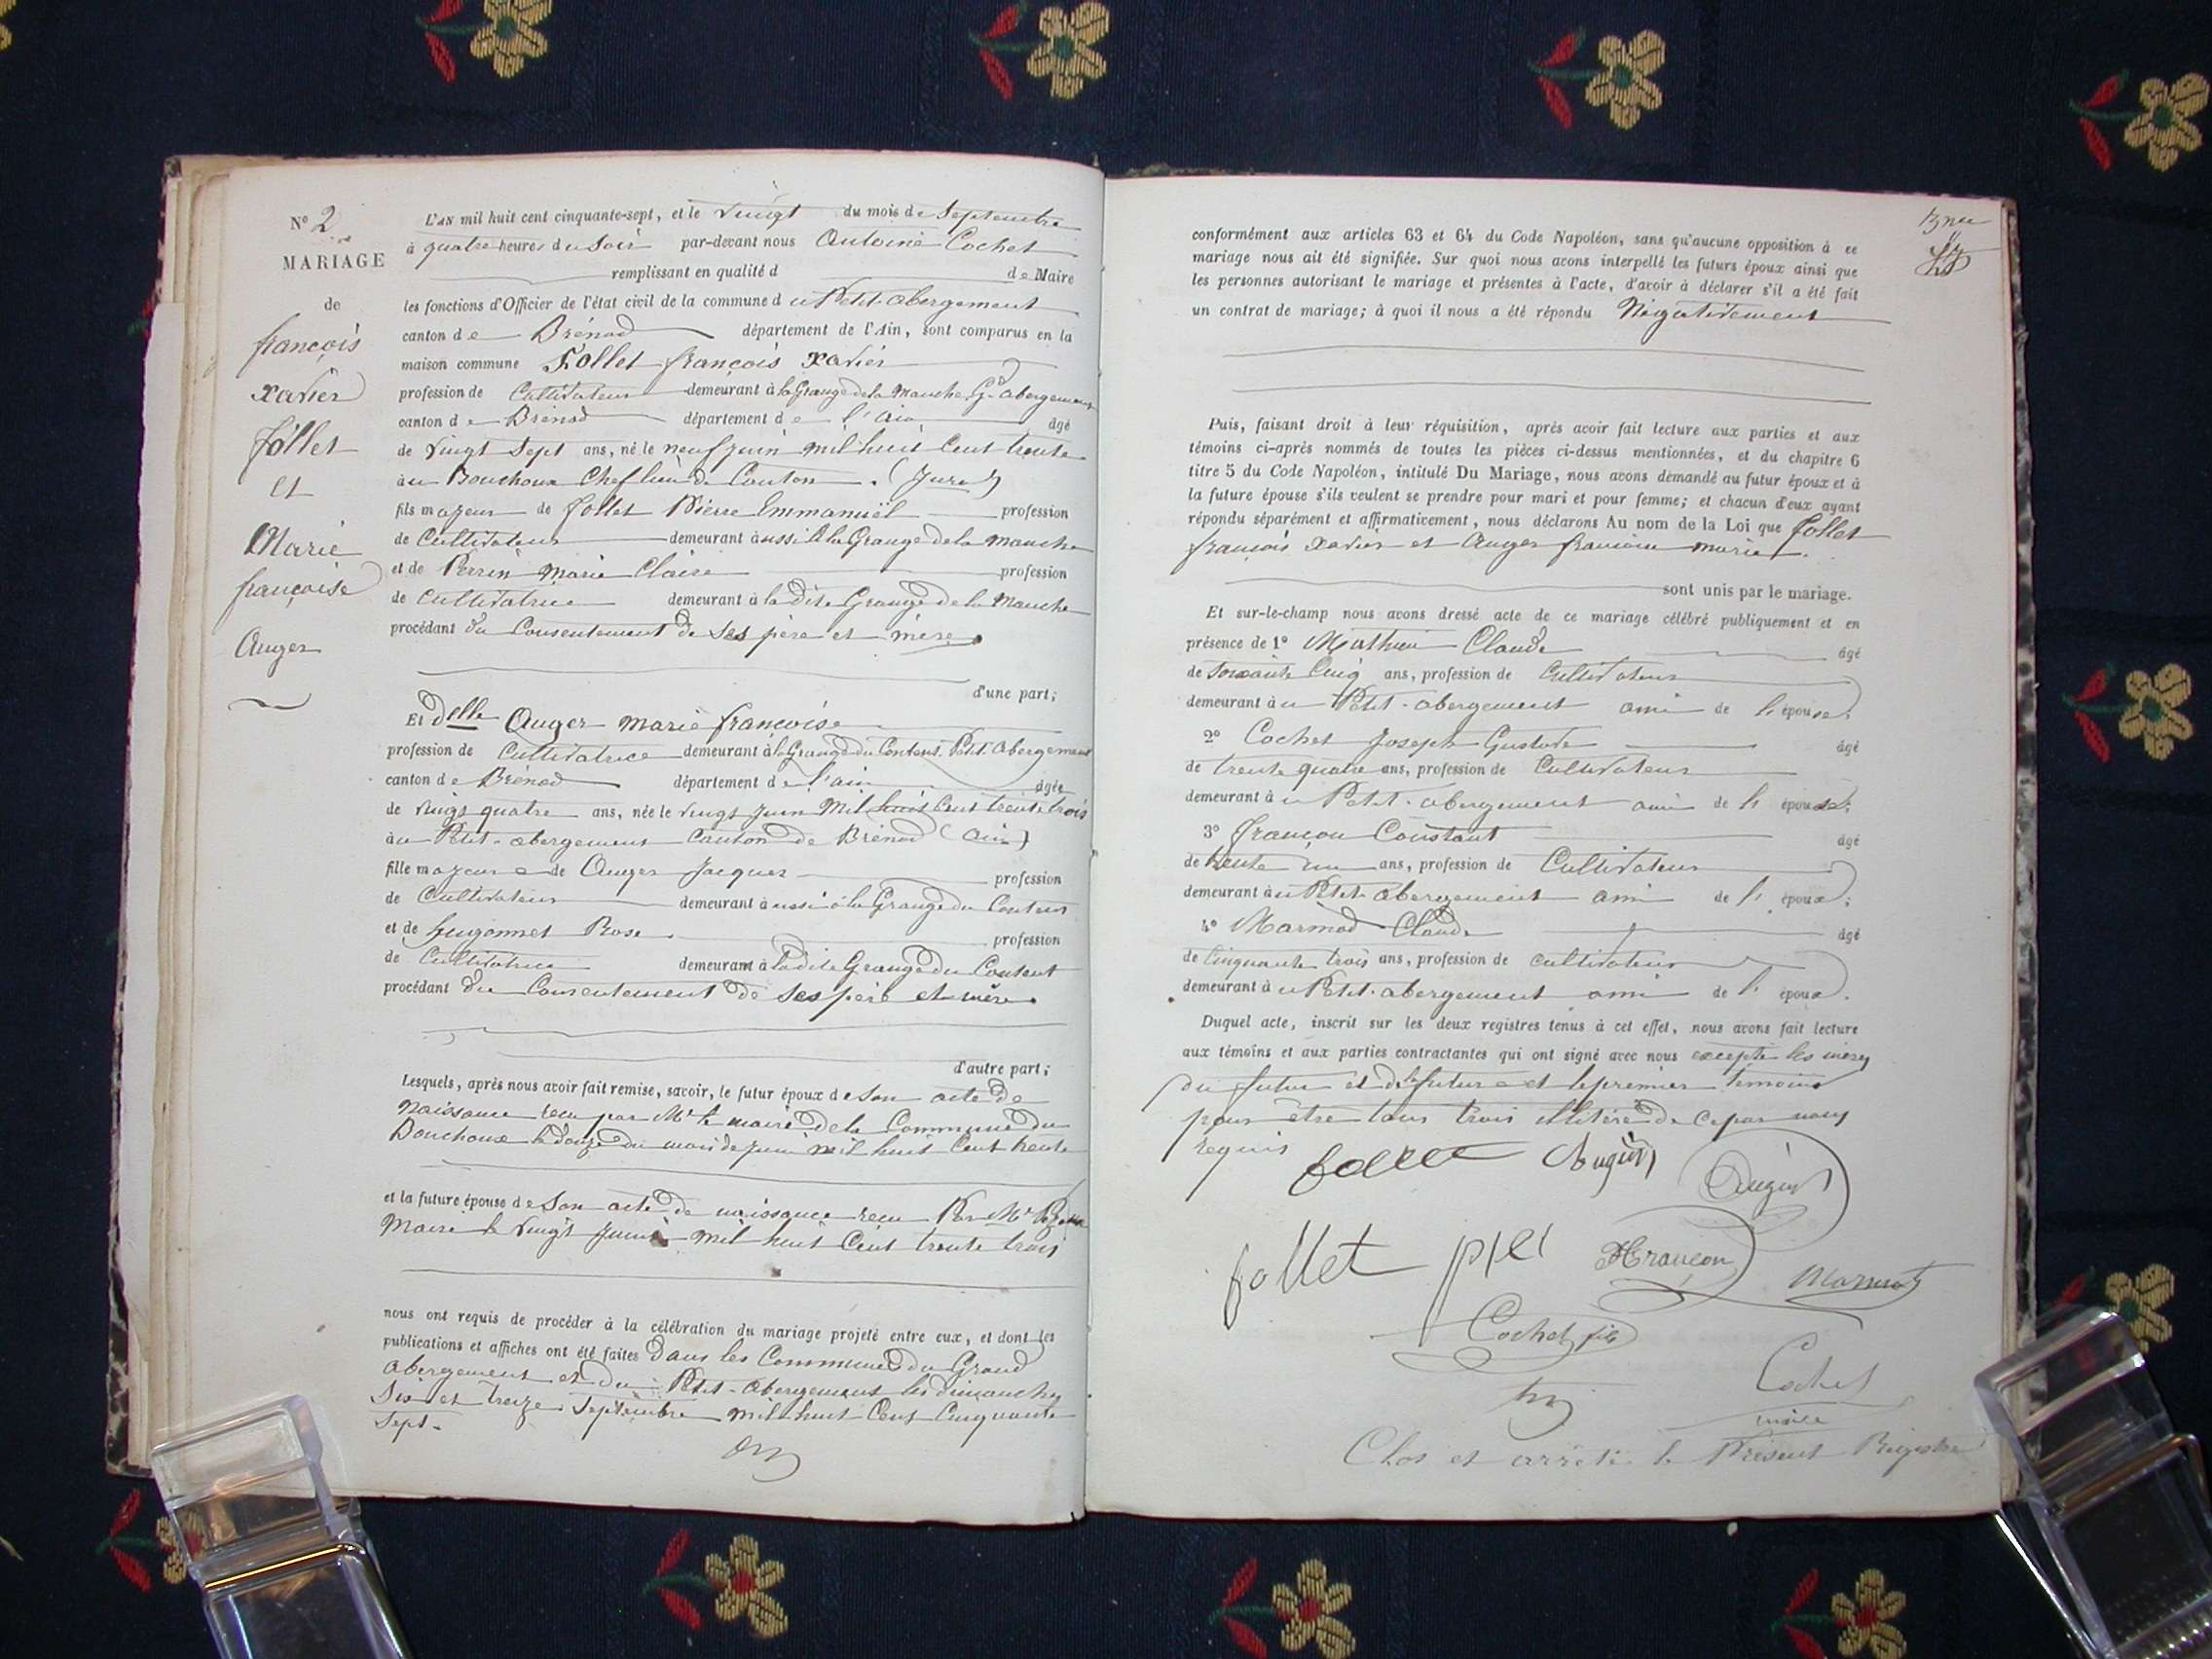 N° 2
MARIAGE
de
françois
xavier
follet
et
Marie
françoise
Auger
L'AN mil huit cent cinquante-sept, et le vingt du mois de Septembre
à quatre heures du Soir par-devant nous Antoine Cochet
remplissant en qualité d de Maire
les fonctions d'Officier de l'état civil de la commune du Petit-abergement
canton de Brénod département de l'Ain, sont comparus en la
maison commune Follet françois xavier
profession de Cultivateur demeurant à la Grange de la Manche Gd abergement
canton de Brénod département de l'ain âgé
de vingt sept ans, né le neuf juin mil huit Cent trente
au Bouchoux Chef lieu de Canton (Jura)
fils majeur de follet Pierre Emmanuël profession
de Cultivateur demeurant aussi à la Grange de la manche
et de Perrin Marie Claire profession
de cultivatrice demeurant à la dite Grange de la Manche
procédant du Consentement de Ses père et mère.
d'une part;
Et Delle Auger Marie françoise
profession de Cultivatrice demeurant à la Grange du Content Petit abergement
canton de Brénod département de l'ain âgée
de vingt quatre ans, née le vingt Juin Mil huit Cent trente trois
au Petit-abergement Canton de Brénod (ain)
fille majeure de Auger Jacques profession
de Cultivateur demeurant aussi à la Grange du Content
et de hugonnet Rose profession
de Cultivatrice demeurant à la dite Grange du Content
procédant du Consentement de Ses père et mère.
d'autre part;
Lesquels, après nous avoir fait remise, savoir, le futur époux de Son acte de
Naissance reçu par Mr le maire de la Commune du
Bouchoux le douze du mois de juin mil huit Cent trente
et la future épouse de Son acte de naissance reçu Par Mr
Maire le vingt Juin mil huit Cent trente trois
nous ont requis de procéder à la célébration du mariage projeté entre eux, et dont les
publications et affiches ont été faites Dans les Communes du Grand
abergement et du Petit-abergement les dimanches
Six et treize Septembre mil huit Cent Cinquante
Sept.
conformément aux articles 63 et 64 du Code Napoléon, sans qu'aucune opposition à ce
mariage nous ait été signifiée. Sur quoi nous avons interpellé les futurs époux ainsi que
les personnes autorisant le mariage et présentes à l'acte, d'avoir à déclarer s'il a été fait
un contrat de mariage; à quoi il nous a été répondu Négativement
Puis, faisant droit à leur réquisition, après avoir fait lecture aux parties et aux
témoins ci-après nommés de toutes les pièces ci-dessus mentionnées, et du chapitre 6
titre 5 du Code Napoléon, intitulé Du Mariage, nous avons demandé au futur époux et à
la future épouse s'ils veulent se prendre pour mari et pour femme; et chacun d'eux ayant
répondu séparément et affirmativement, nous déclarons Au nom de la Loi que follet
françois xavier et Auger françoise marie
sont unis par le mariage.
Et sur-le-champ nous avons dressé acte de ce mariage célébré publiquement et en
présence de 1° Mathieu Claude âgé
de soixante Cinq ans, profession de Cultivateur
demeurant au Petit-abergement ami de l'épouse;
2° Cochet Joseph Gustave âgé
de trente quatre ans, profession de Cultivateur
demeurant au Petit-abergement ami de l'épouse;
3° françon Constant âgé
de trente un ans, profession de Cultivateur
demeurant au Petit-abergement ami de l'époux;
4° Marmod Claude âgé
de Cinquante trois ans, profession de cultivateur
demeurant au Petit-abergement ami de l'époux.
Duquel acte, inscrit sur les deux registres tenus à cet effet, nous avons fait lecture
aux témoins et aux parties contractantes qui ont signé avec nous excepté les mères
du futur et de la future et le premier témoins
pour être tous trois illitéré de ce par nous
requis
follet Augér Augér
follet françon Marmod
Cochet fils
Cochet
maire
Clos et arrêté le Présent Régistre